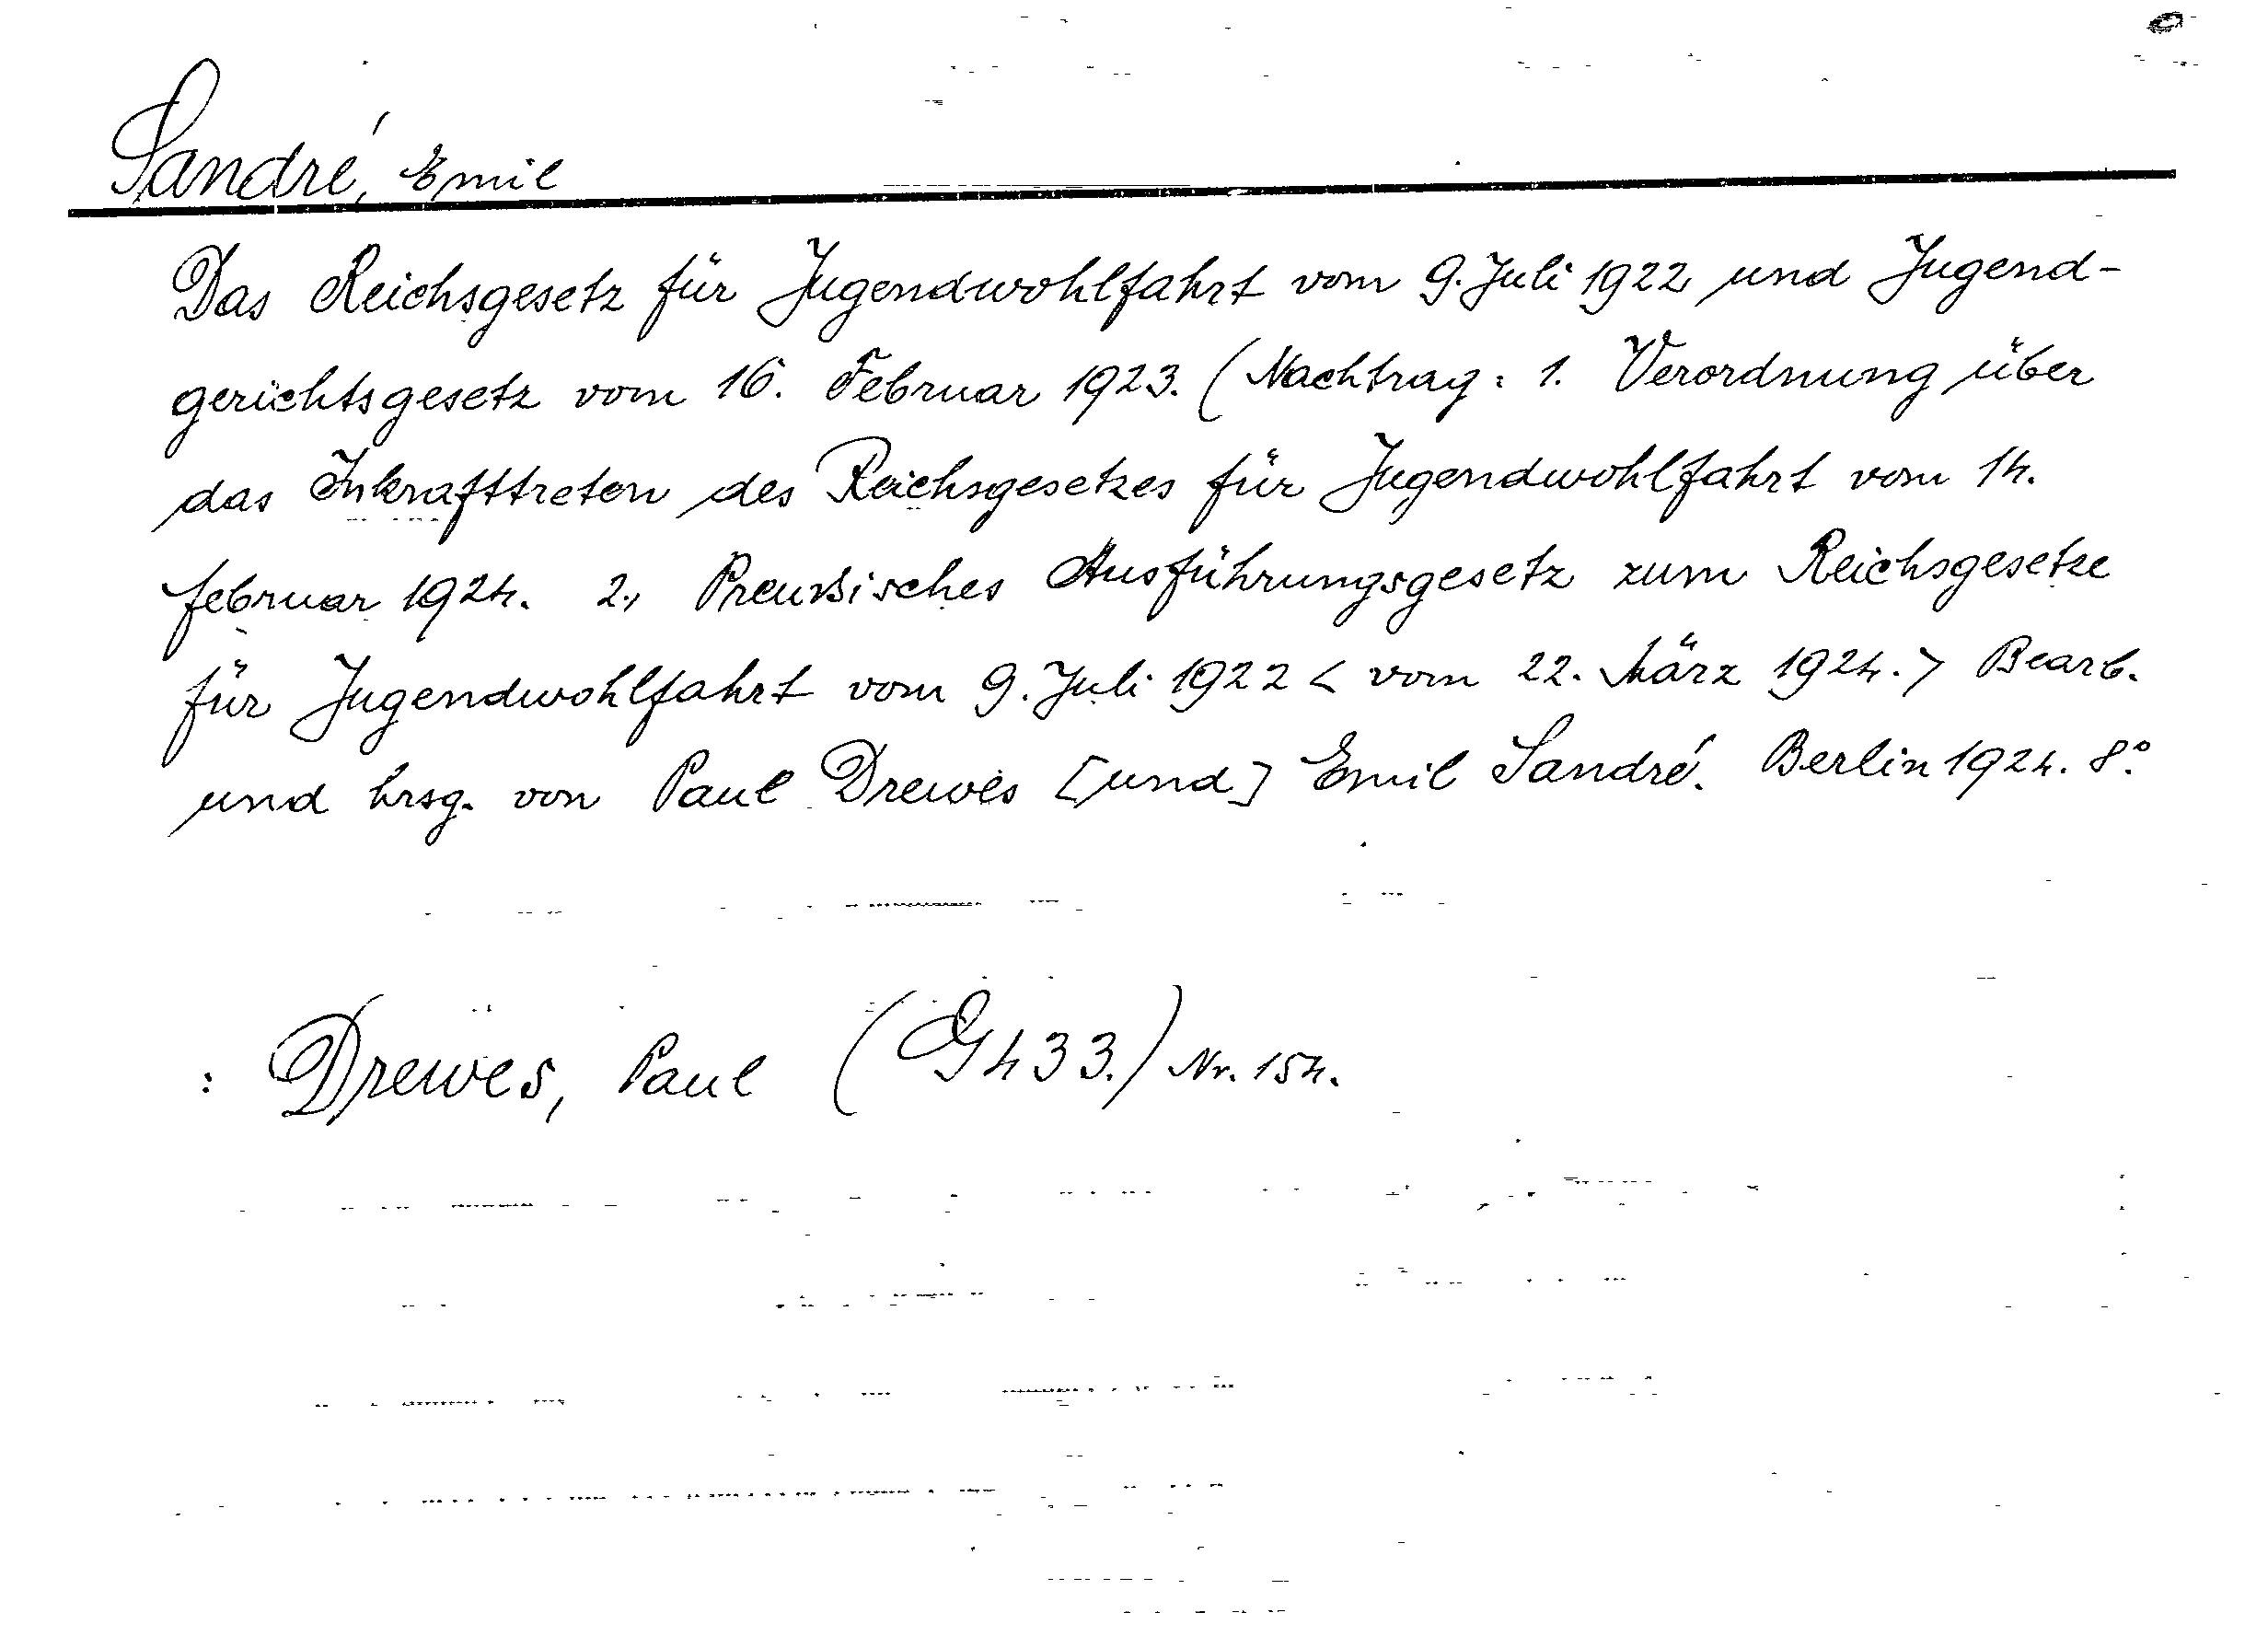 Sandré, Emil
Das Reichsgesetz für Jugendwohlfahrt vom 9. Juli 1922 und Jugend-
gerichtsgesetz vom 16. Februar 1923. (Nachtrag: 1. Verordnung über
das Inkrafttreten des Reichsgesetzes für Jugendwohlfahrt vom 14.
februar 1924. 2., Preußisches Ausführungsgesetz zum Reichsgesetze
für Jugendwohlfahrt vom 9. Juli 1922 < vom 22. März 1924. > Bearb.
und hrsg. von Paul Drewes [und] Emil Sandré. Berlin 1924. 8°.
: Drewes, Paul (G 433.) Nr. 154.